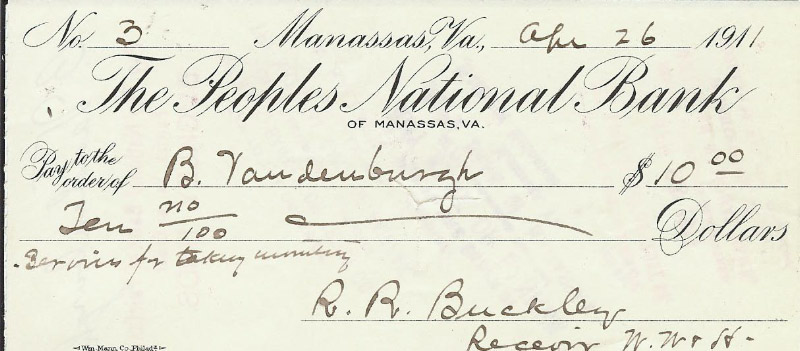 No. 3 Manassas, Va., Apr 26 1911
The Peoples National Bank
OF MANASSAS, VA.
Pay to the order of B. Vandenburgh $10 00
Ten no/100 Dollars
Services for taking
R. R. Buckley
Receiver W. W. & H.
Wm. Mann Co. Philada.